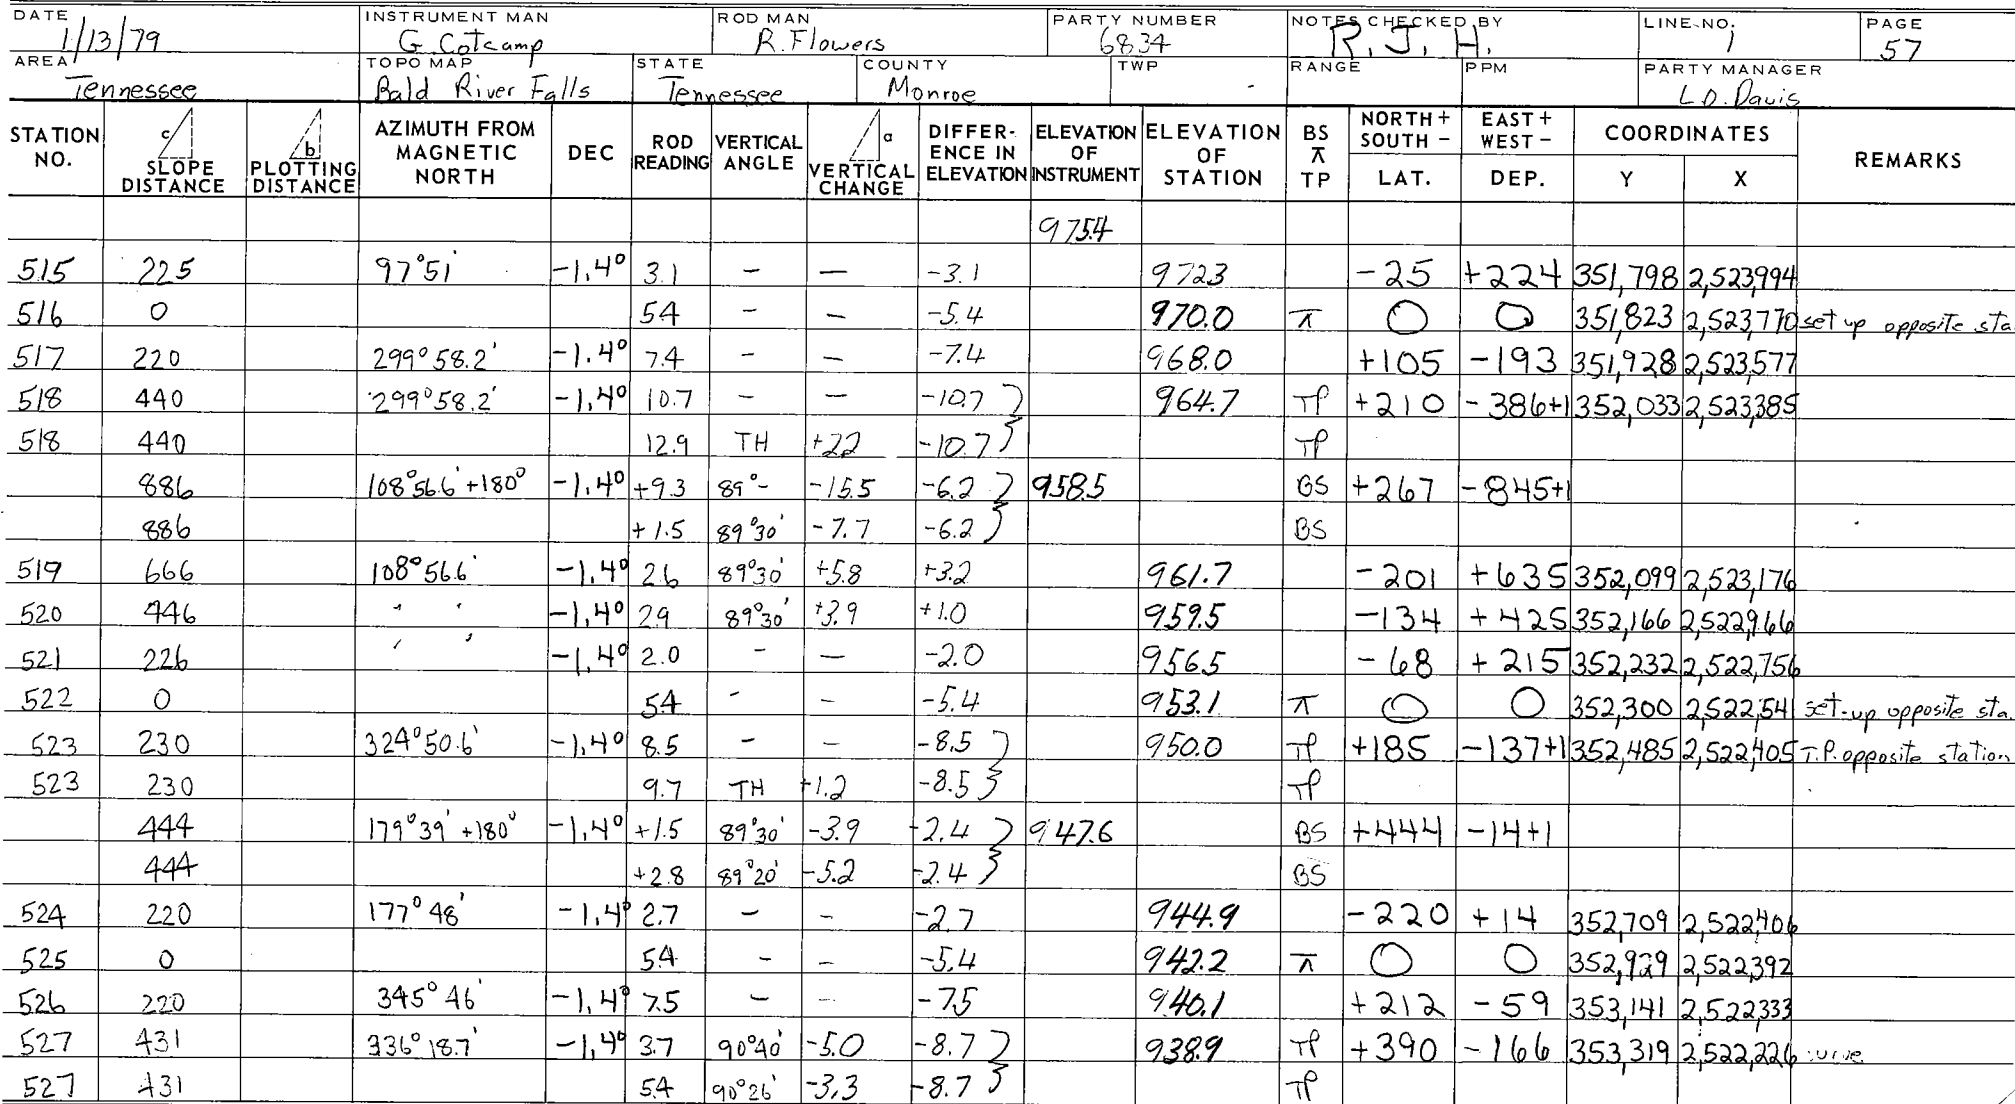 DATE INSTRUMENT MAN ROD MAN PARTY NUMBER NOTES CHECKED BY LINE NO. PAGE
1/13/79 G. Cotcamp R. Flowers 6834 R. J. H. 1 57
AREA TOPO MAP STATE COUNTY TWP RANGE PPM PARTY MANAGER
Tennessee Bald River Falls Tennessee Monroe L.D. Davis
STATION NO. c SLOPE DISTANCE b PLOTTING DISTANCE AZIMUTH FROM MAGNETIC NORTH DEC ROD READING VERTICAL ANGLE a VERTICAL CHANGE DIFFER- ENCE IN ELEVATION ELEVATION OF INSTRUMENT ELEVATION OF STATION BS ⊼ TP NORTH + SOUTH - LAT. EAST + WEST - DEP. COORDINATES Y X REMARKS
975.4
515 225 97°51' -1.4° 3.1 - - -3.1 972.3 -25 +224 351,798 2,523,994
516 0 5.4 - - -5.4 970.0 ⊼ 0 0 351,823 2,523,770 set up opposite sta.
517 220 299°58.2' -1.4° 7.4 - - -7.4 968.0 +105 -193 351,928 2,523,577
518 440 299°58.2' -1.4° 10.7 - - -10.7 964.7 TP +210 -386+1 352,033 2,523,385
518 440 12.9 TH +2.2 -10.7 TP
886 108°56.6'+180° -1.4° +9.3 89°- -15.5 -6.2 958.5 BS +267 -845+1
886 +1.5 89°30' -7.7 -6.2 BS
519 666 108°56.6' -1.4° 2.6 89°30' +5.8 +3.2 961.7 -201 +635 352,099 2,523,176
520 446 " " -1.4° 2.9 89°30' +3.9 +1.0 959.5 -134 +425 352,166 2,522,966
521 226 " " -1.4° 2.0 - - -2.0 956.5 -68 +215 352,232 2,522,756
522 0 5.4 - - -5.4 953.1 ⊼ 0 0 352,300 2,522,541 set-up opposite sta.
523 230 324°50.6' -1.4° 8.5 - - -8.5 950.0 TP +185 -137+1 352,485 2,522,405 T.P. opposite station
523 230 9.7 TH +1.2 -8.5 TP
444 179°39'+180° -1.4° +1.5 89°30' -3.9 -2.4 947.6 BS +444 -14+1
444 +2.8 89°20' -5.2 -2.4 BS
524 220 177°48' -1.4° 2.7 - - -2.7 944.9 -220 +14 352,709 2,522,406
525 0 5.4 - - -5.4 942.2 ⊼ 0 0 352,929 2,522,392
526 220 345°46' -1.4° 7.5 - - -7.5 940.1 +212 -59 353,141 2,522,333
527 431 336°18.7' -1.4° 3.7 90°40' -5.0 -8.7 938.9 TP +390 -166 353,319 2,522,226 curve
527 431 5.4 90°26' -3.3 -8.7 TP